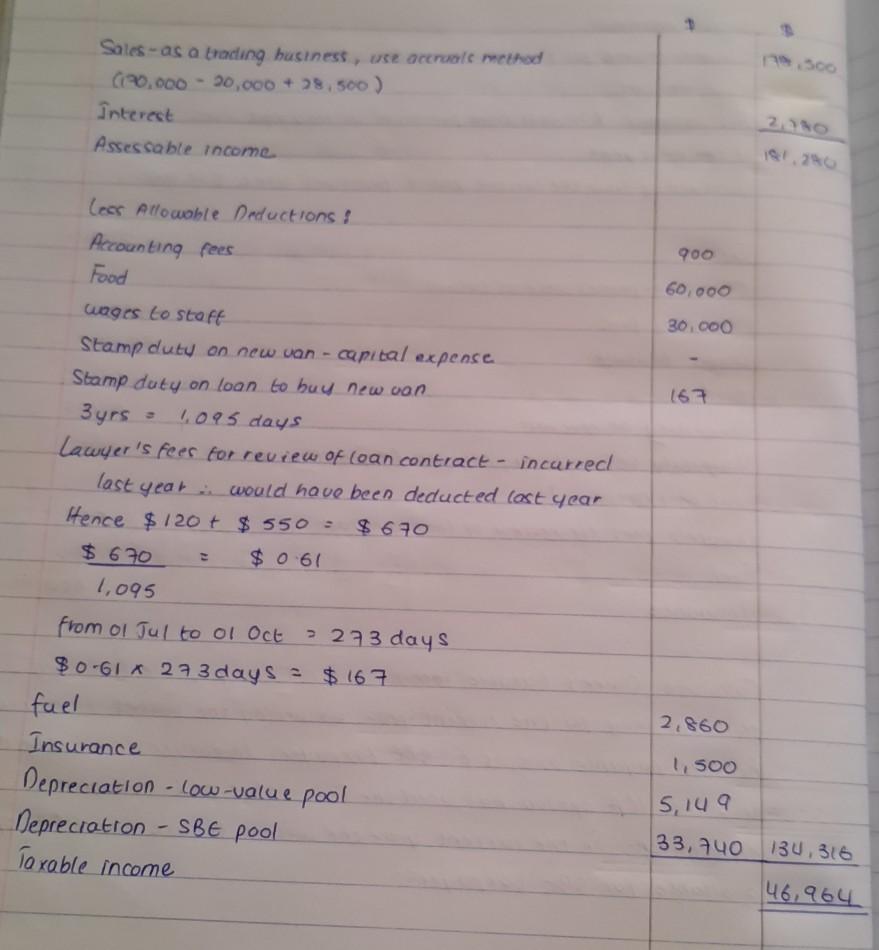 $ $
Sales - as a trading business, use accruals method 178,500
(170,000 - 20,000 + 28,500)
Interest 2,780
Assessable income 181,280
Less Allowable Deductions:
Accounting fees 900
Food 60,000
Wages to staff 30,000
Stamp duty on new van - capital expense -
Stamp duty on loan to buy new van 167
3yrs = 1,095 days
Lawyer's fees for review of loan contract - incurred
last year ∴ would have been deducted last year
Hence $120 + $550 = $670
$670 = $0.61
1,095
from 01 Jul to 01 Oct = 273 days
$0.61 x 273 days = $167
fuel 2,860
Insurance 1,500
Depreciation - low-value pool 5,149
Depreciation - SBE pool 33,740 134,316
Taxable income 46,964